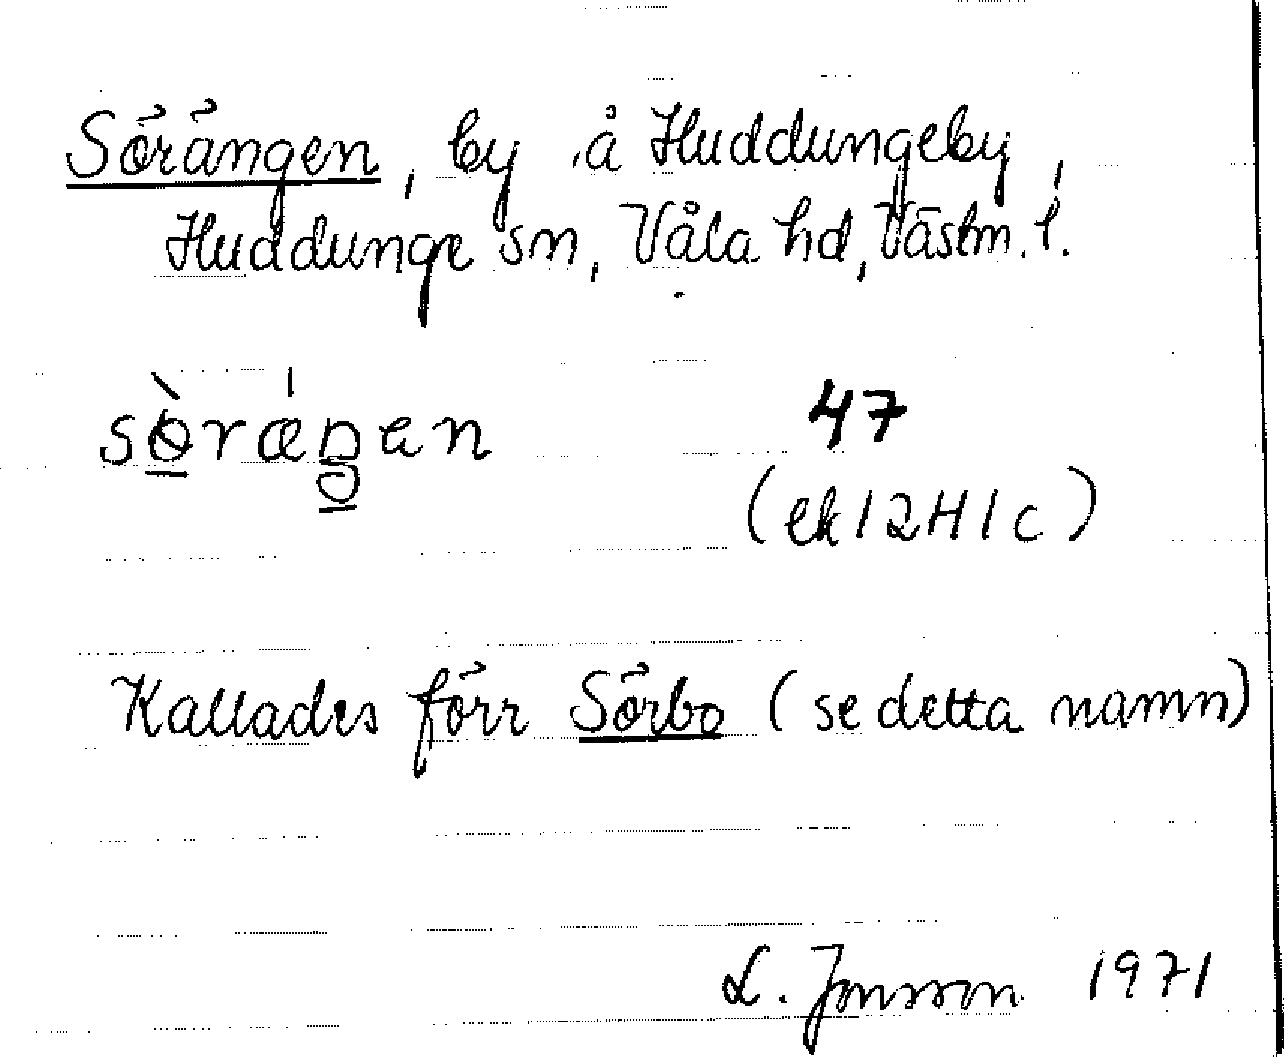 Sörängen, by å Huddungeby,
Huddunge sn, Våla hd, Västm. l.
sɵ̀rǽŋen 47
(ek 12H1c)
Kallades förr Sörbo (se detta namn)
L. Jonsson 1971